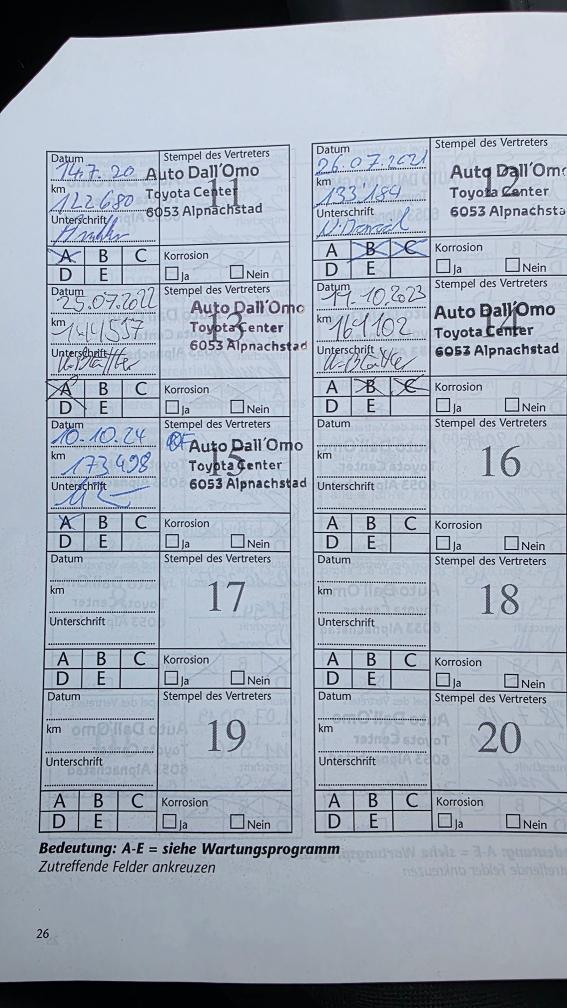 Datum
14.7.20
km
122680
Unterschrift
Stempel des Vertreters
11
Auto Dall'Omo
Toyota Center
6053 Alpnachstad
A B C
D E
Korrosion
Ja Nein
Datum
26.07.2021
km
133'184
Unterschrift
Stempel des Vertreters
12
Auto Dall'Om
Toyota Center
6053 Alpnachsta
A B C
D E
Korrosion
Ja Nein
Datum
25.07.2022
km
144537
Unterschrift
Stempel des Vertreters
13
Auto Dall'Omo
Toyota Center
6053 Alpnachstad
A B C
D E
Korrosion
Ja Nein
Datum
km
164102
Unterschrift
Stempel des Vertreters
14
Auto Dall'Omo
Toyota Center
6053 Alpnachstad
A B C
D E
Korrosion
Ja Nein
Datum
10.10.24
km
173498
Unterschrift
Stempel des Vertreters
15
Auto Dall'Omo
Toyota Center
6053 Alpnachstad
A B C
D E
Korrosion
Ja Nein
Datum
km
Unterschrift
Stempel des Vertreters
16
A B C
D E
Korrosion
Ja Nein
Datum
km
Unterschrift
Stempel des Vertreters
17
A B C
D E
Korrosion
Ja Nein
Datum
km
Unterschrift
Stempel des Vertreters
18
A B C
D E
Korrosion
Ja Nein
Datum
km
Unterschrift
Stempel des Vertreters
19
A B C
D E
Korrosion
Ja Nein
Datum
km
Unterschrift
Stempel des Vertreters
20
A B C
D E
Korrosion
Ja Nein
Bedeutung: A-E = siehe Wartungsprogramm
Zutreffende Felder ankreuzen
26